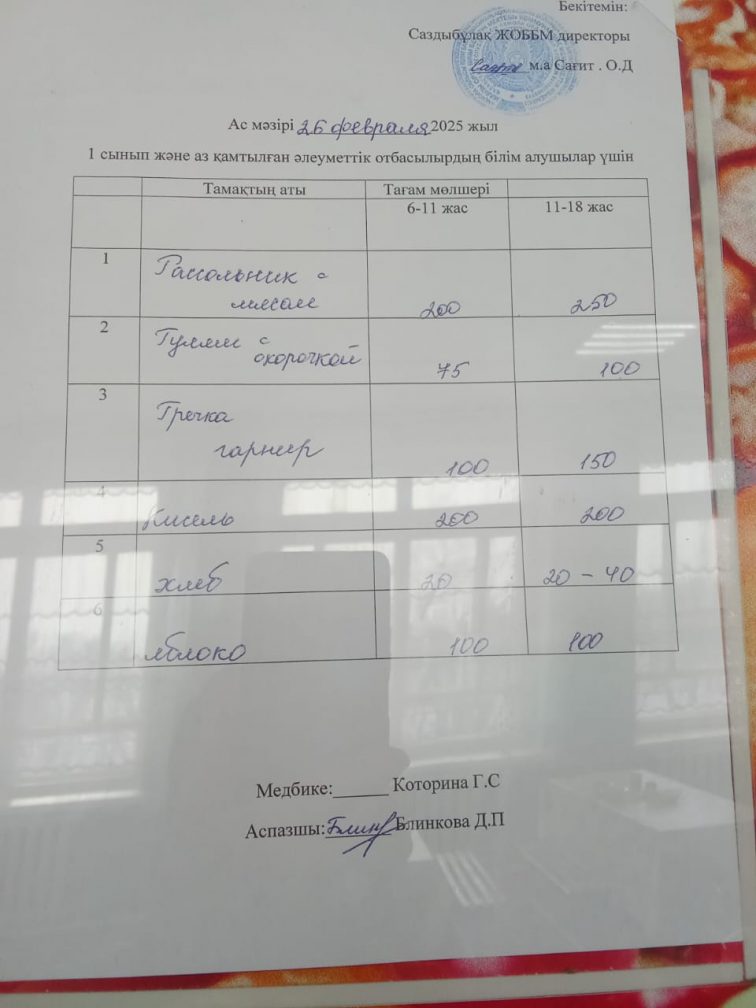 Бекітемін:
Саздыбұлақ ЖОББМ директоры
м.а Сағит . О.Д
Ас мәзірі 26 февраля 2025 жыл
1 сынып және аз қамтылған әлеуметтік отбасылырдың білім алушылар үшін
Тамақтың аты Тағам мөлшері
6-11 жас 11-18 жас
1 Рассольник с
мясом 200 250
2 Гуляш с
окорочкой 75 100
3 Гречка
гарнир 100 150
4
Кисель 200 200
5
хлеб 20 20 – 40
6
яблоко 100 100
Медбике:______ Которина Г.С
Аспазшы: Блинкова Д.П